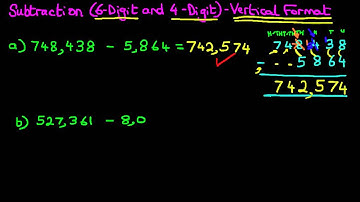 Subtraction (6-Digit and 4-Digit)-Vertical Format
a) 748,438 - 5,864 = 742,574
748,438
- 5864
742,574
b) 527,361 - 8,0